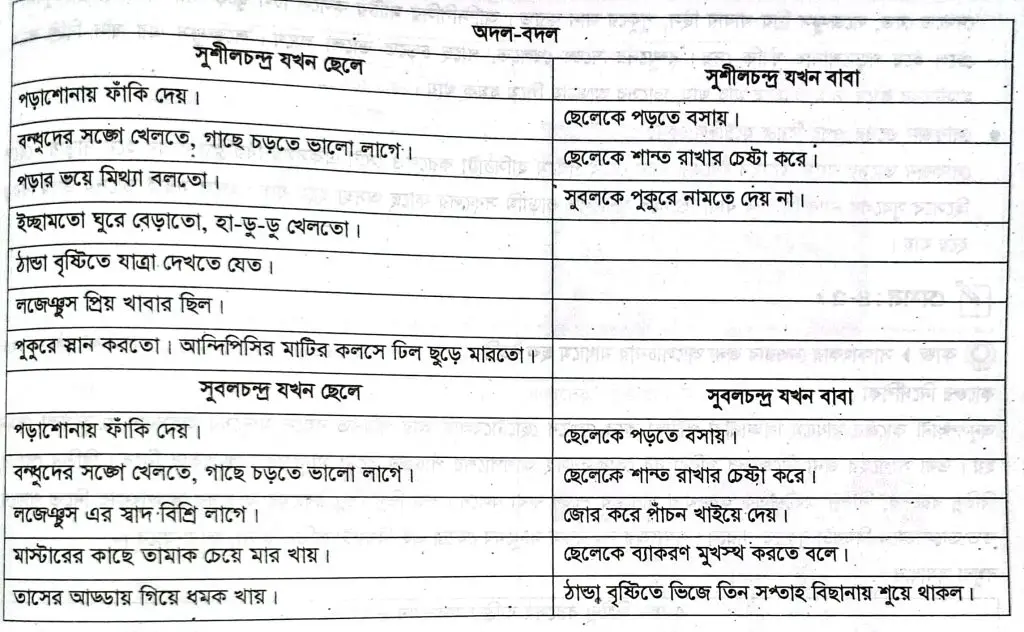 অদল-বদল
সুশীলচন্দ্র যখন ছেলে
সুশীলচন্দ্র যখন বাবা
পড়াশোনায় ফাঁকি দেয়।
ছেলেকে পড়তে বসায়।
বন্ধুদের সঙ্গে খেলতে, গাছে চড়তে ভালো লাগে।
ছেলেকে শান্ত রাখার চেষ্টা করে।
পড়ার ভয়ে মিথ্যা বলতো।
সুবলকে পুকুরে নামতে দেয় না।
ইচ্ছামতো ঘুরে বেড়াতো, হা-ডু-ডু খেলতো।
ঠান্ডা বৃষ্টিতে যাত্রা দেখতে যেত।
লজেঞ্জুস প্রিয় খাবার ছিল।
পুকুরে স্নান করতো। আন্দিপিসির মাটির কলসে ঢিল ছুড়ে মারতো।
সুবলচন্দ্র যখন ছেলে
সুবলচন্দ্র যখন বাবা
পড়াশোনায় ফাঁকি দেয়।
ছেলেকে পড়তে বসায়।
বন্ধুদের সঙ্গে খেলতে, গাছে চড়তে ভালো লাগে।
ছেলেকে শান্ত রাখার চেষ্টা করে।
লজেঞ্জুস এর স্বাদ বিশ্রি লাগে।
জোর করে পাঁচন খাইয়ে দেয়।
মাস্টারের কাছে তামাক চেয়ে মার খায়।
ছেলেকে ব্যাকরণ মুখস্থ করতে বলে।
তাসের আড্ডায় গিয়ে ধমক খায়।
ঠান্ডা বৃষ্টিতে ভিজে তিন সপ্তাহ বিছানায় শুয়ে থাকল।